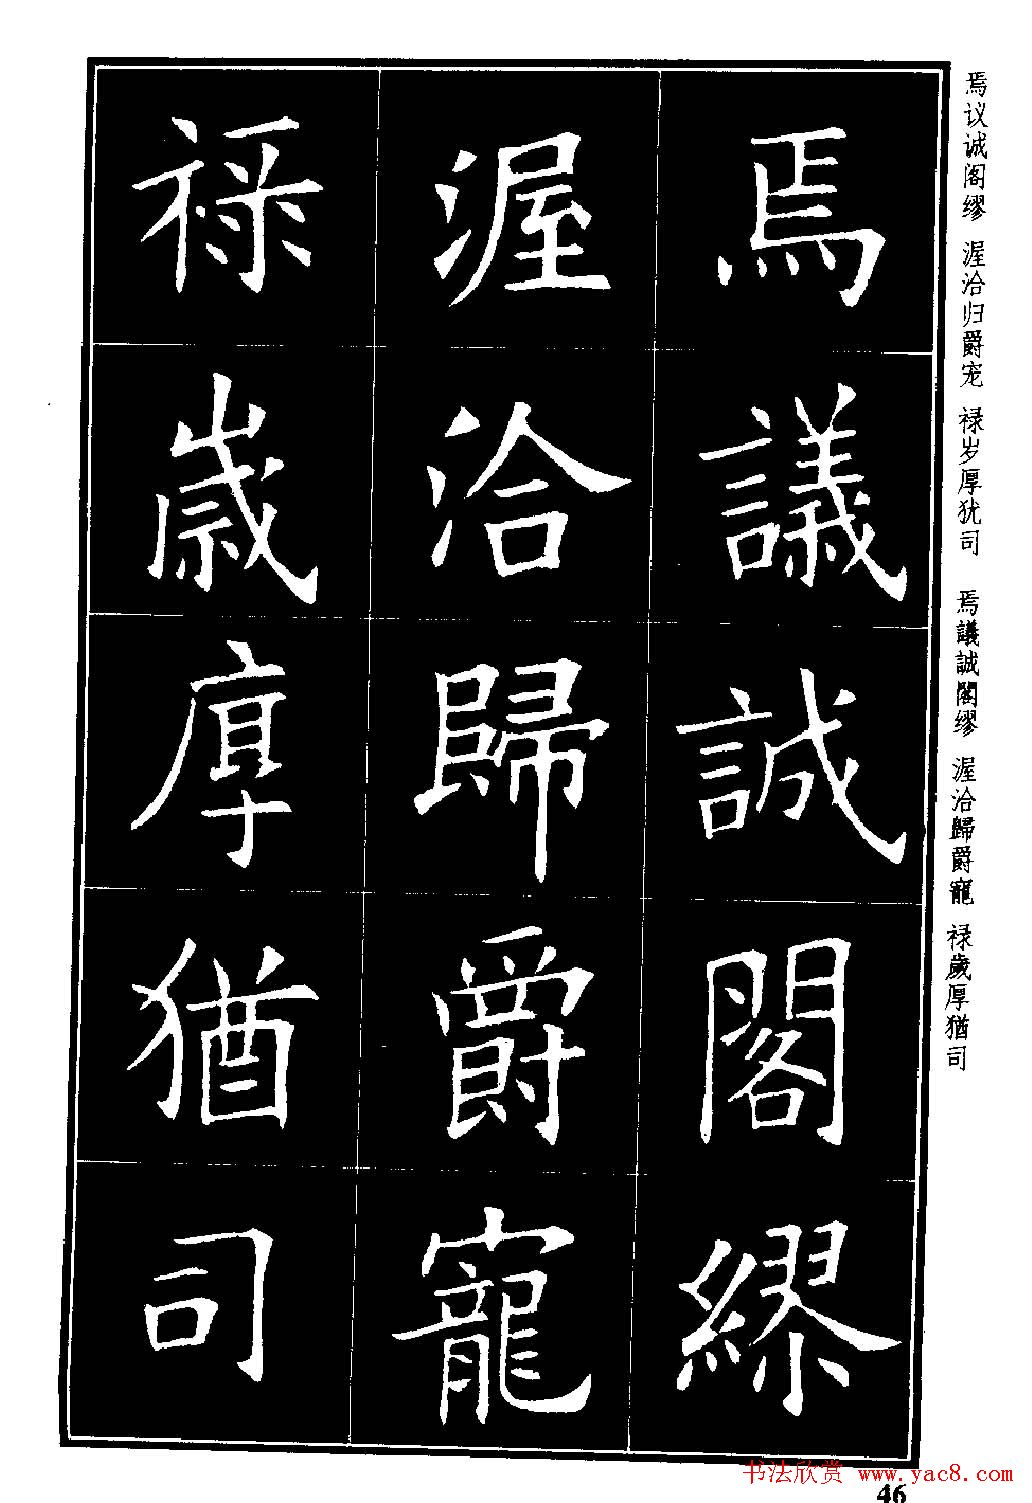 焉議誠閣繆
渥洽歸爵寵
禄歲厚猶司
焉议诚阁缪 渥洽归爵宠 禄岁厚犹司 焉議誠閣繆 渥洽歸爵寵 禄歲厚猶司
书法欣赏 www.yac8.com
46